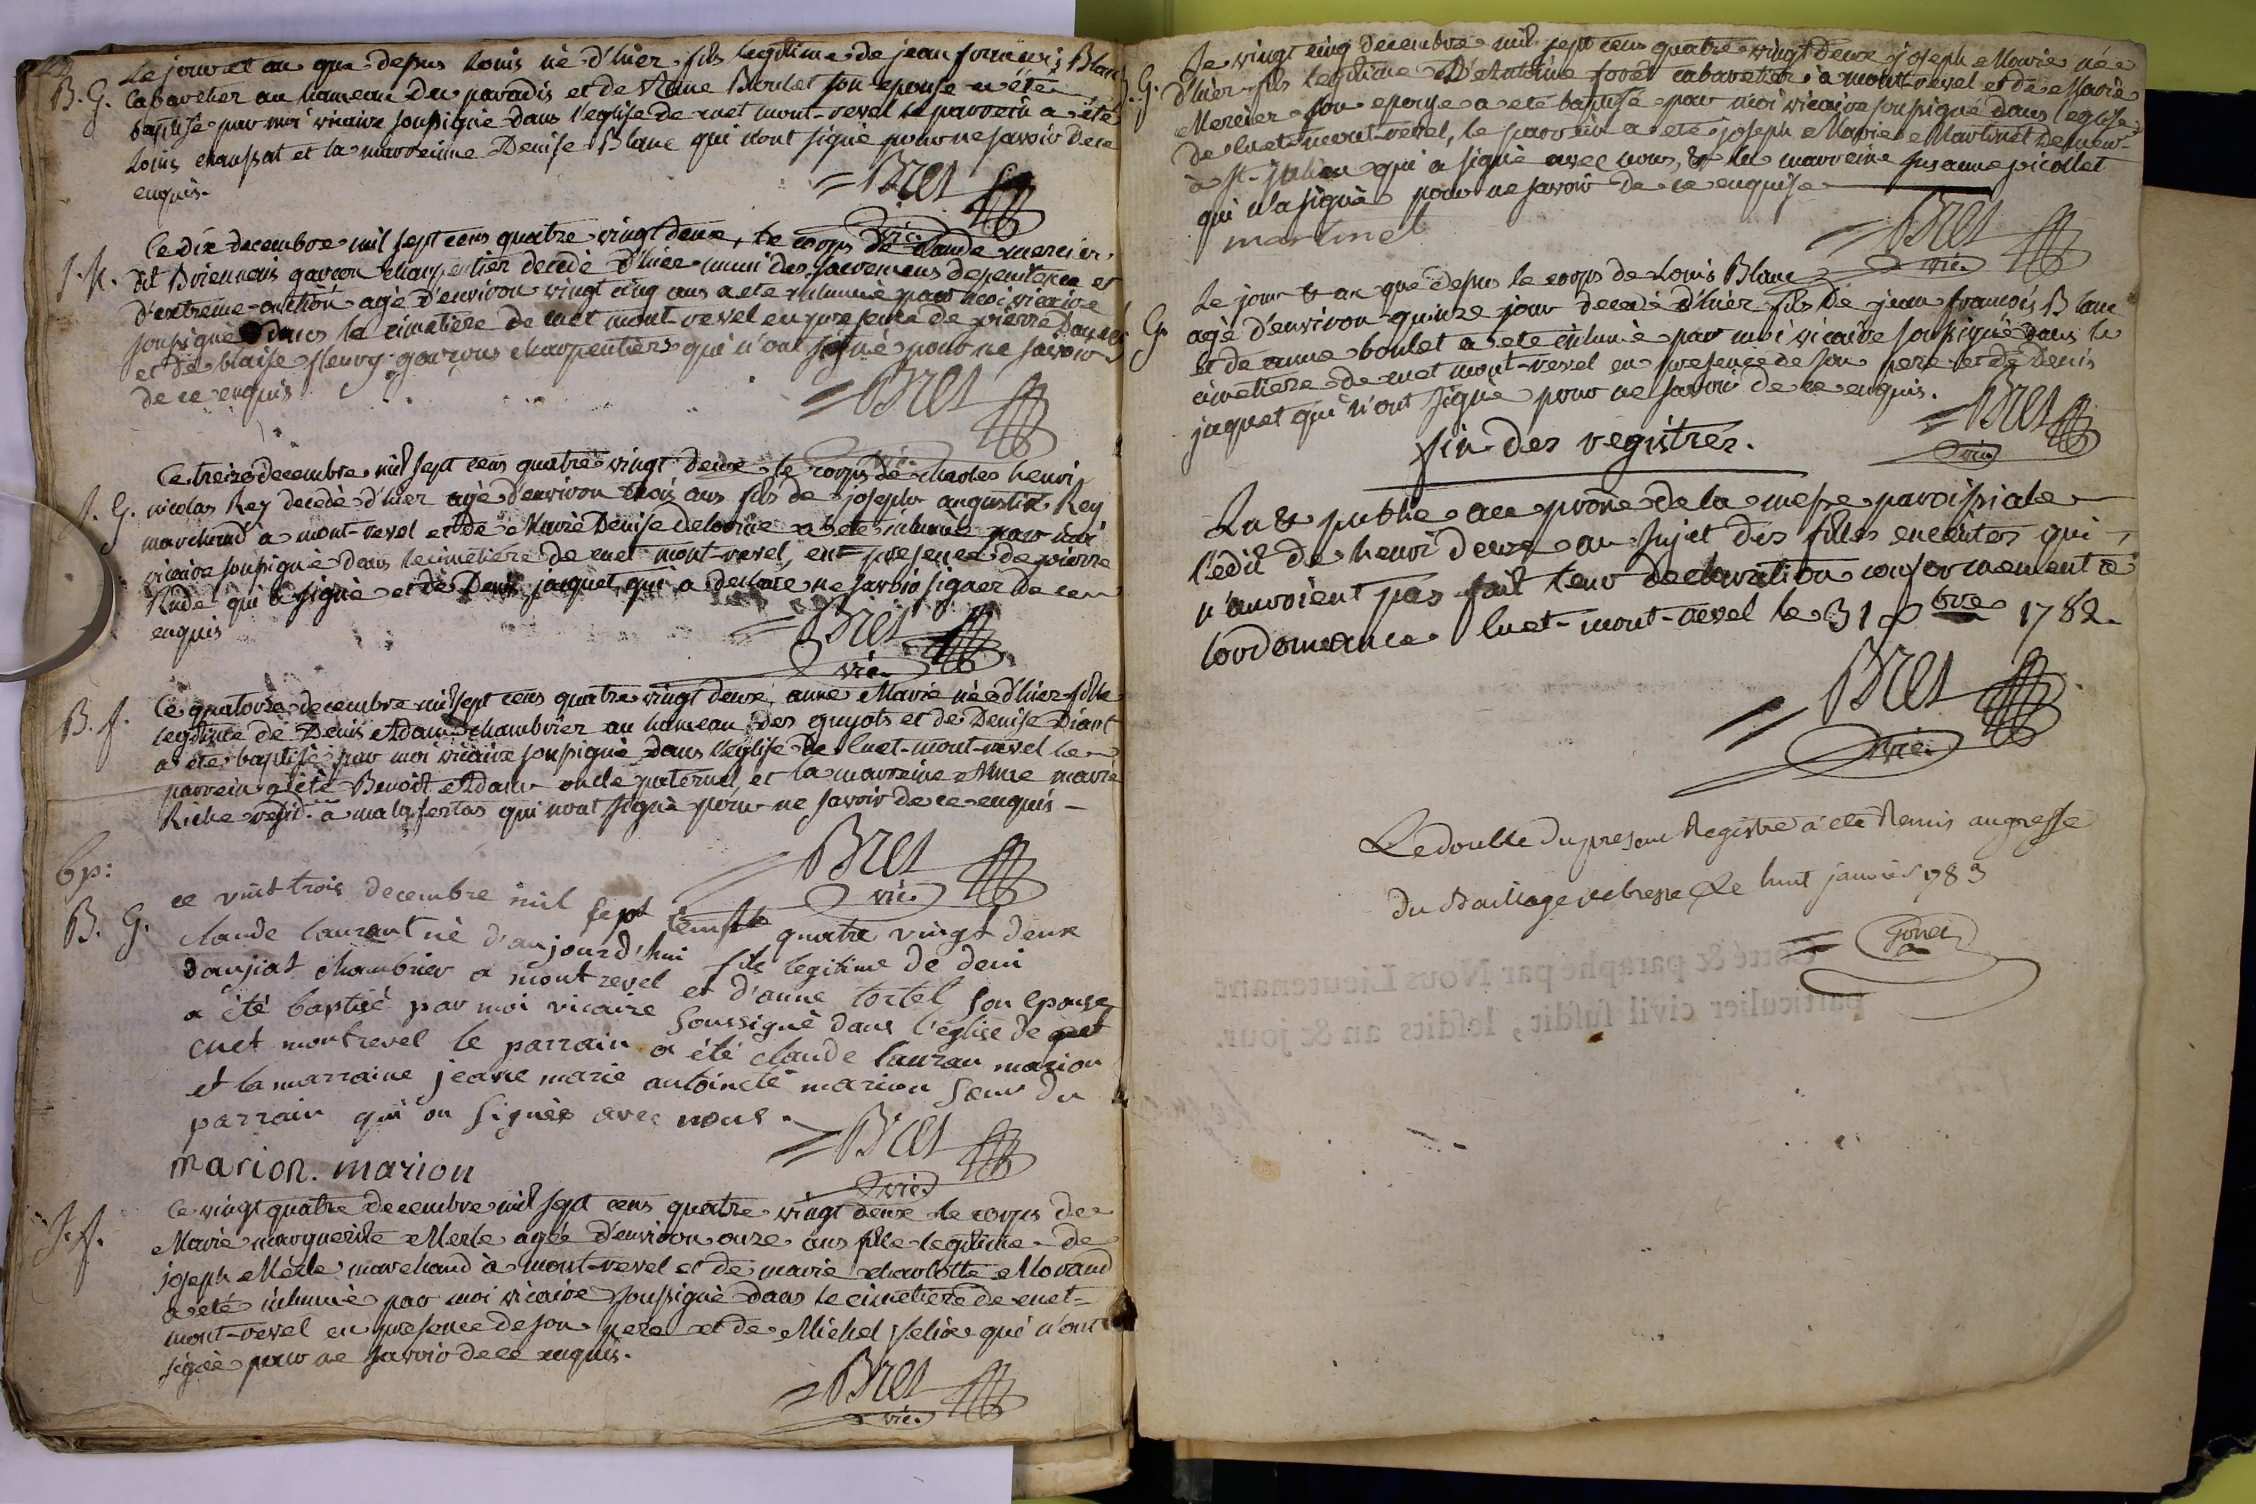 B. G. Le jour et an que depus Louis né d'hier fils legitime de jean francois Blanc
Cabaretier au hameau du paradis et de Anne Boulet son epouse a été
baptisé par moi vicaire soussigné dans l'eglise de cuet mont-revel le parrein a été
Louis chanssat et la marreinne Denise Blanc qui nont signé pour ne savoir de ce
enquis.
Bret
vic.
S. h. Ce dix decembre mil sept cens quatre vingt deux, le corps de claude mercier,
dit Boiennois garcon charpentier decedé d'hier muni des sacremens de penitence et
d'extreme-onction agé d'environ vingt cinq ans a ete inhumé par moi vicaire
soussigné dans le cimetiere de cuet mont-revel en presence de pierre
et de blaise fleury garcons charpentiers qui n'ont signé pour ne savoir
de ce enquis
Bret
vic.
S. G. Ce treize decembre mil sept cens quatre vingt deux le corps de charles henri
nicolas Rey decedé d'hier agé d'environ trois ans fils de joseph augustin Rey
marchand à mont-revel et de Marie Denise delorme a ete inhumé par moi
vicaire soussigné dans le cimetiere de cuet mont-revel, en presence de pierre
Rude qui a signé et de Denis jaquet qui a declaré ne savoir signer de ce
enquis
Bret
vic.
B. f. Ce quatorze decembre mil sept cens quatre vingt deux, anne Marie née d'hier fille
legitime de Denis Adam chambrier au hameau des guyots et de Denise Diant
a été baptisé par moi vicaire soussigné dans l'eglise de cuet-mont-revel le
parrein a été Benoit Adam oncle paternel, et la marreine Anne marie
Riche resid. à malafertas qui nont signé pour ne savoir de ce enquis
Bret
vic.
bp:
B. G. ce vint trois decembre mil sept cens quatre vingt deux
claude laurant né d'aujourd'hui fils legitime de deni
danjiat chambrier a montrevel et d'anne tortel son epouse
a été baptisé par moi vicaire soussigné dans l'église de
cuet montrevel le parrain a été claude lauran marion
et la marraine jeanne marie antoinete marion sœur du
parrain qui on signés avec nous.
Bret
vic.
marion. marion
S. f. Ce vingt quatre decembre mil sept cens quatre vingt deux le corps de
Marie marguerite Merle agée d'environ onze ans fille legitime de
joseph Merle marchand à mont-revel et de marie charlotte Morand
a eté inhumé par moi vicaire soussigné dans le cimetiere de cuet-
mont-revel en presence de son pere et de Michel felix qui n'ont
signé pour ne savoir de ce enquis.
Bret
vic.
B. G. Le vingt cinq decembre mil sept cens quatre vingt deux joseph Marie né
d'hier fils legitime d'Antoine forêt cabaretier à mont-revel et de Marie
Mercier son epouse a eté baptisé par moi vicaire soussigné dans l'eglise
de cuet-mont-revel, le parrein a eté joseph Marie Martinet demeur-
à st-julien qui a signé avec nous, & la marreine susanne picollet
qui n'a signé pour ne savoir de ce enquise
martinet
Bret
vic.
G. Le jour & an que depus le corps de Louis Blanc
agé d'environ quinze jour decedé d'hier fils de jean francois Blanc
et de anne boulet a ete inhumé par moi vicaire soussigné dans le
cimetiere de cuet mont-revel en presence de son pere et de Denis
jaquet qui n'ont signé pour ne savoir de ce enquis.
Bret
vic.
fin des registres.
Lu & publié au prone de la messe paroissiale
l'edit de henri deux au sujet des filles enceintes qui
n'auroient pas fait leur declaration conformement à
lordonnance cuet-mont-revel le 31 xbre 1782.
Bret
vic.
Le double du present Registre a été Remis au greffe
du Bailliage de bresse Le huit janvier 1783
Cotté & paraphé par Nous Lieutenant
particulier civil susdit, lesdits an & jour.